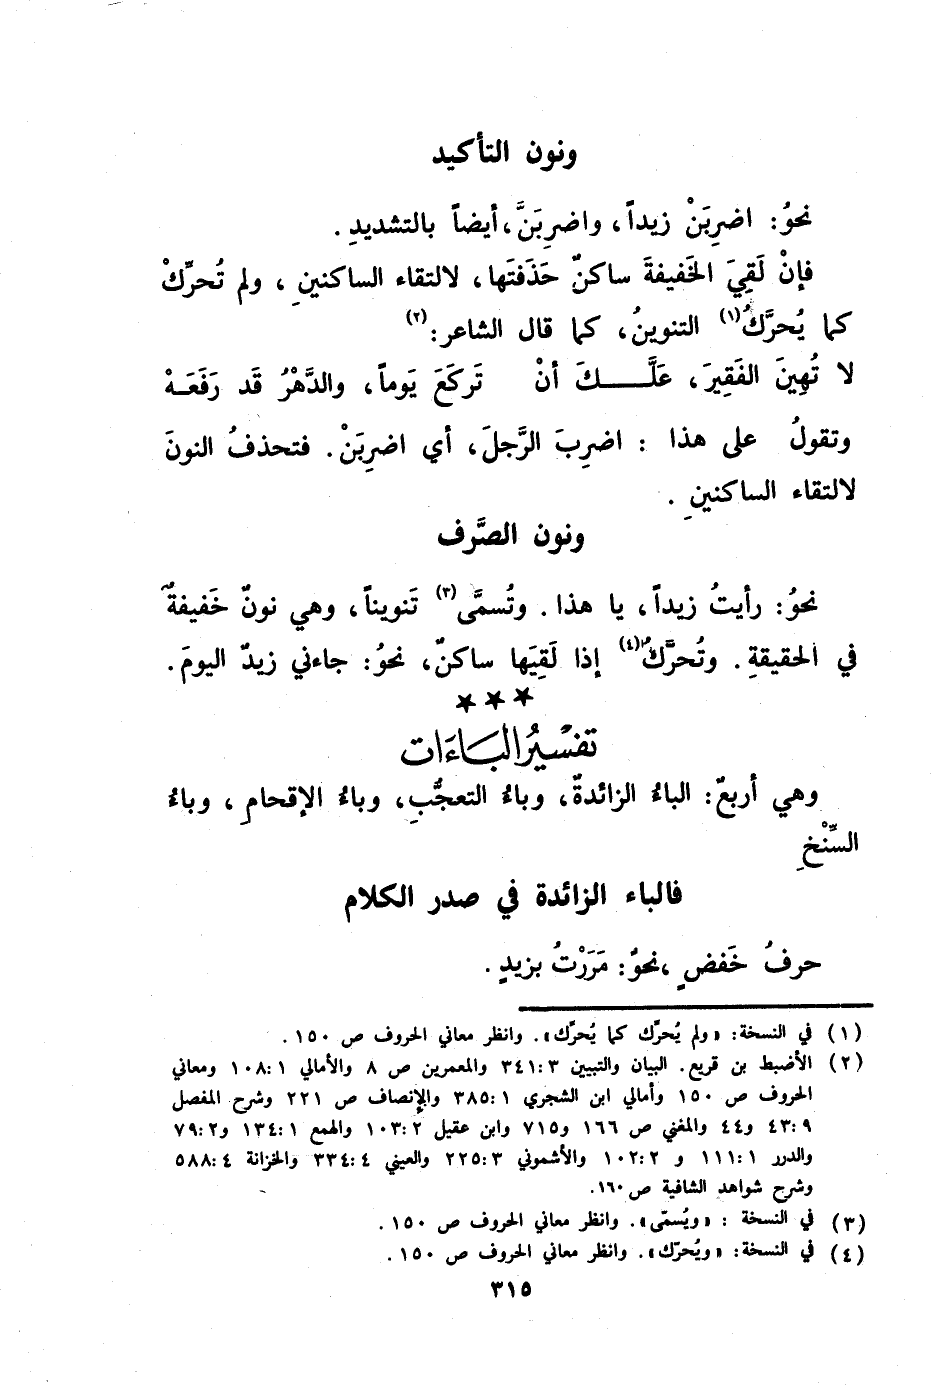 ونون التأكيد
نحوُ: اضرِبَنْ زيداً، واضرِبَنَّ، أيضاً بالتشديدِ.
فإنْ لَقِيَ الخَفيفةَ ساكنٌ حَذَفتَها، لالتقاء الساكنينِ، ولم تُحرِّكْ
كما يُحرَّكُ(١) التنوينُ، كما قال الشاعر:(٢)
لا تُهِينَ الفَقِيرَ، عَلَّـــــكَ أنْ تَركَعَ يَوماً، والدَّهْرُ قَد رَفَعَـهْ
وتقولُ على هذا : اضرِبَ الرَّجلَ، أي اضرِبَنْ. فتحذفُ النونَ
لالتقاء الساكنينِ.
ونون الصَّرف
نحوُ: رأيتُ زيداً، يا هذا. وتُسمَّى(٣) تَنويناً، وهي نونٌ خَفيفةٌ
في الحقيقةِ. وتُحرَّكُ(٤) إذا لَقِيَها ساكنٌ، نحوُ: جاءني زيدٌ اليومَ.
***
تفسيرُ الباءَات
وهي أربعٌ: الباءُ الزائدةُ، وباءُ التعجُّبِ، وباءُ الإقحامِ، وباءُ
السِّنْخِ
فالباء الزائدة في صدر الكلام
حرفُ خَفضٍ، نحوُ: مَرَرْتُ بزيدٍ.
(١) في النسخة: «ولم يُحرِّك كما يُحرِّك». وانظر معاني الحروف ص ١٥٠.
(٢) الأضبط بن قريع. البيان والتبيين ٣٤١:٣ والمعمرين ص ٨ والأمالي ١٠٨:١ ومعاني
الحروف ص ١٥٠ وأمالي ابن الشجري ٣٨٥:١ والإنصاف ص ٢٢١ وشرح المفصل
٤٣:٩ و٤٤ والمغني ص ١٦٦ و٧١٥ وابن عقيل ١٠٣:٢ والهمع ١٣٤:١ و٧٩:٢
والدرر ١١١:١ و ١٠٢:٢ والأشموني ٢٢٥:٣ والعيني ٣٣٤:٤ والخزانة ٥٨٨:٤
وشرح شواهد الشافية ص ١٦٠.
(٣) في النسخة : «ويُسمّى». وانظر معاني الحروف ص ١٥٠.
(٤) في النسخة: «ويُحرّك». وانظر معاني الحروف ص ١٥٠.
٣١٥